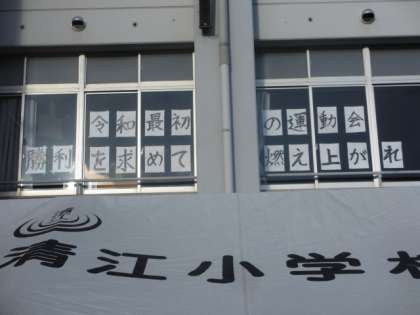 令和最初の運動会
勝利を求めて燃え上がれ
清江小学校